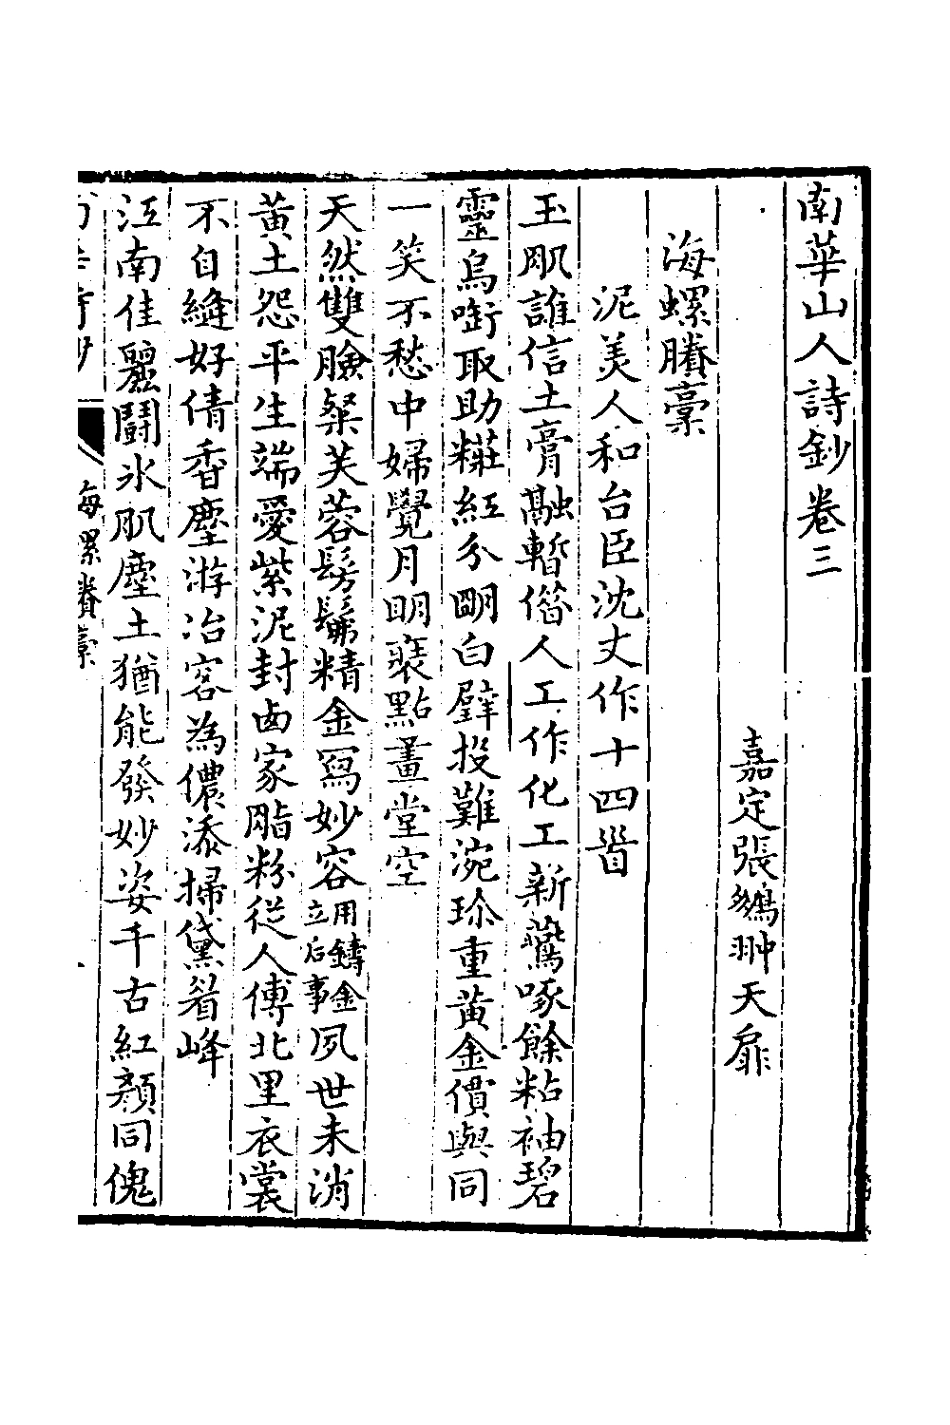 南華山人詩鈔卷三
嘉定張鵬翀天扉
海螺賸稾
泥美人和台臣沈丈作十四首
玉肌誰信土膏融暫僭人工作化工新鶯啄餘粘袖碧
靈烏銜取助糚紅分明白璧投難浣珎重黄金償與同
一笑不愁中婦覺月明裵點畫堂空
天然雙臉粲芙蓉髣髴精金寫妙容用鑄金立后事夙世未消
黄土怨平生端愛紫泥封鹵家脂粉從人傅北里衣裳
不自縫好倩香塵游冶窩為儂添掃黛眉峰
江南佳麗鬪氷肌塵土猶能發妙姿千古紅顏同傀
海螺賸稾